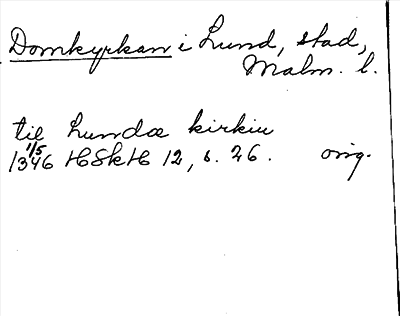 Domkyrkan i Lund, stad,
Malm. l.
til Lundæ kirkiu
1/5
1346 HSkH 12, s. 26. orig.